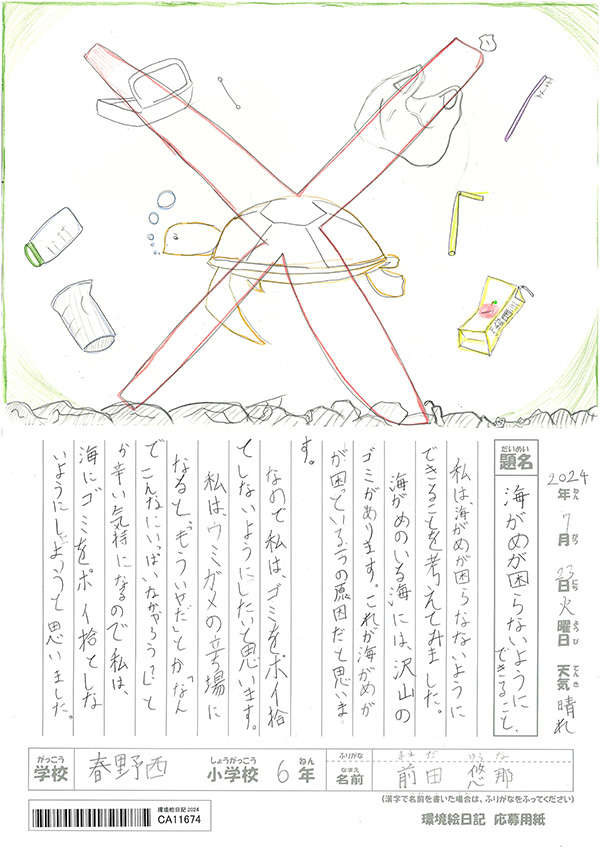 2024年7月23日火曜日 天気 晴れ
ねん がつ にち ようび てんき
だいめい
題名 海がめが困らないように
できること。
私は海がめが困らなないように
できることを考えてみました。
海がめのいる海には、沢山の
ゴミがあります。これが海がめが
が困っている一つの原因だと思いま
す。
なので私は、ゴミをポイ拾
てしないようにしたいと思います。
私は、ウミガメの立場に
なると、「もういやだ」とか「なん
でこんなにいっぱいなんやろう?」と
か辛い気持になるので私は、
海にゴミをポイ拾としな
いようにしようと思いました。
がっこう しょうがっこう ねん ふりがな まえ だ ゆう な
学校 春野西 小学校 6年 なまえ 名前 前田 悠那
(漢字で名前を書いた場合は、ふりがなをふってください)
環境絵日記2024
CA11674
環境絵日記 応募用紙